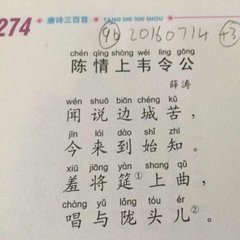 274
唐诗三百首 · TANG SHI 300 SHOU
20160714 +3
chén qíng shàng wéi lìng gōng
陈情上韦令公
薛涛
wén shuō biān chéng kǔ
闻说边城苦，
jīn lái dào shǐ zhī
今来到始知。
xiū jiāng yán shang qǔ
羞将筵①上曲，
chàng yǔ lǒng tóu ér
唱与陇头儿②。